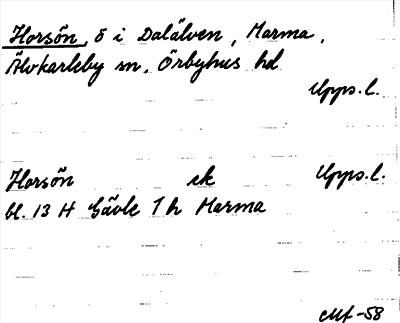 Horsön, ö i Dalälven, Marma,
Älvkarleby sn, Örbyhus hd
Upps.l.
Horsön ek Upps.l.
bl. 13 H Gävle 1 h Marma
-58